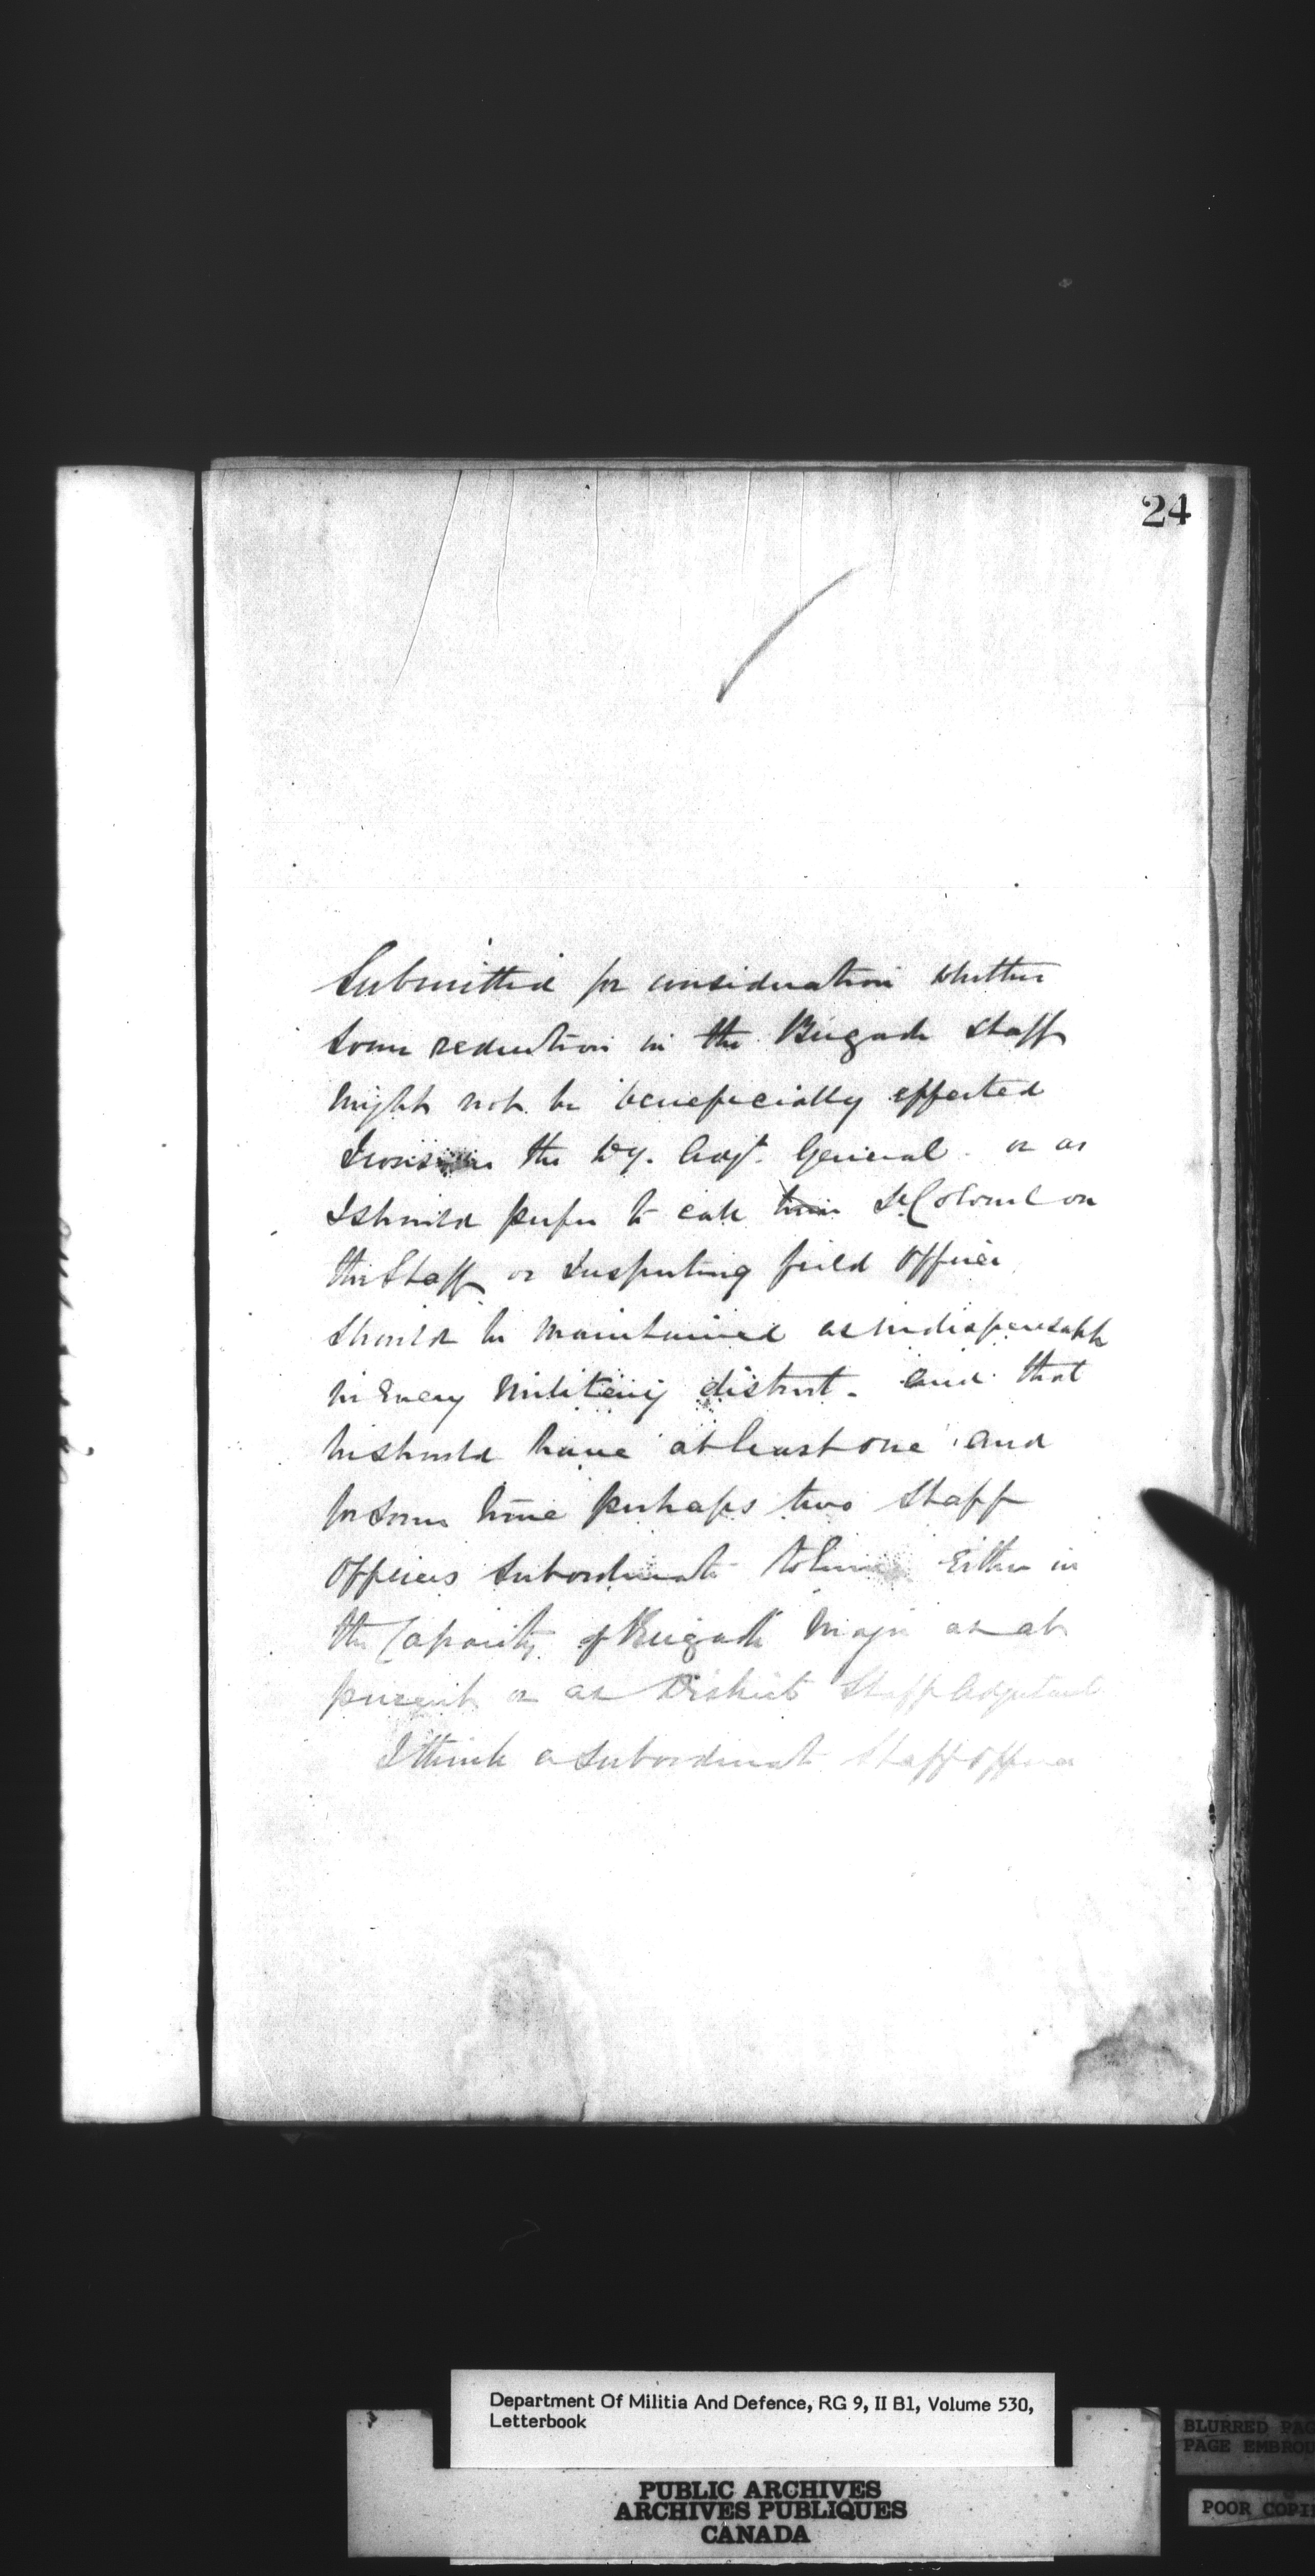 24
Submitted for consideration whether
some reduction in the Brigade Staff
might not be beneficially effected
I consider the Dy. Adjt. General or as
I should prefer to call him Lt Colonel on
the Staff or Inspecting field officer
should be maintained as indispensable
in every military district. and that
he should have at least one and
for some time perhaps two Staff
officers subordinate to him either in
the Capacity of Brigade Major as at
present or as District Staff Adjutant
I think a subordinate Staff officer
Department Of Militia And Defence, RG 9, II B1, Volume 530,
Letterbook
PUBLIC ARCHIVES
ARCHIVES PUBLIQUES
CANADA
BLURRED
PAGE
POOR